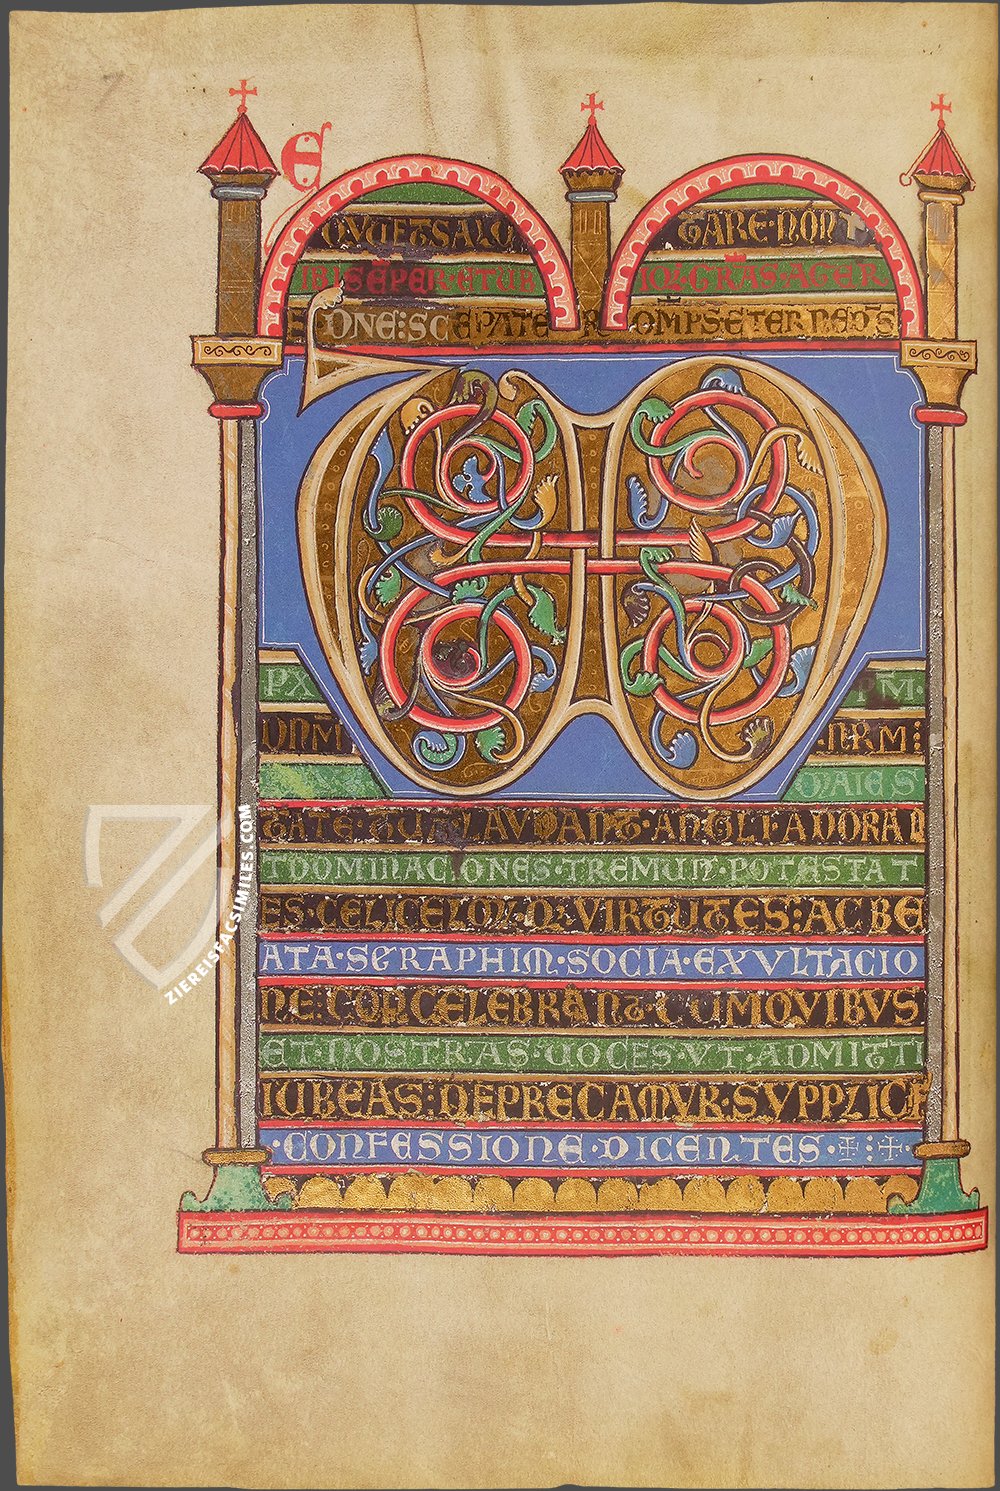 E
QVU ET SALU TARE·NON
IBI SĒPER·ET UB IQƺ·GRAS·AGER
E DNE: SCE PATE R OMPS ETER NE DS
PX PM̄·
DNM̄ NRM:
MAIES
TATE·TUA·LAVDANT·ANGLI·ADORAN
T DOMINACIONES·TREMUNT·POTESTAT
ES·CELI CELOꝜ·Qƺ VIRTUTES: AC BE
ATA·SERAPHIM·SOCIA·EXVLTACIO
NE: CONCELEBRANT·CUM QVIBUS
ET·NOSTRAS·UOCES·VT·ADMITTI
IUBEAS: DEPRECAMUR·SVPPLICE
·CONFESSIONE·DICENTES·
ZIEREIS FACSIMILES.COM